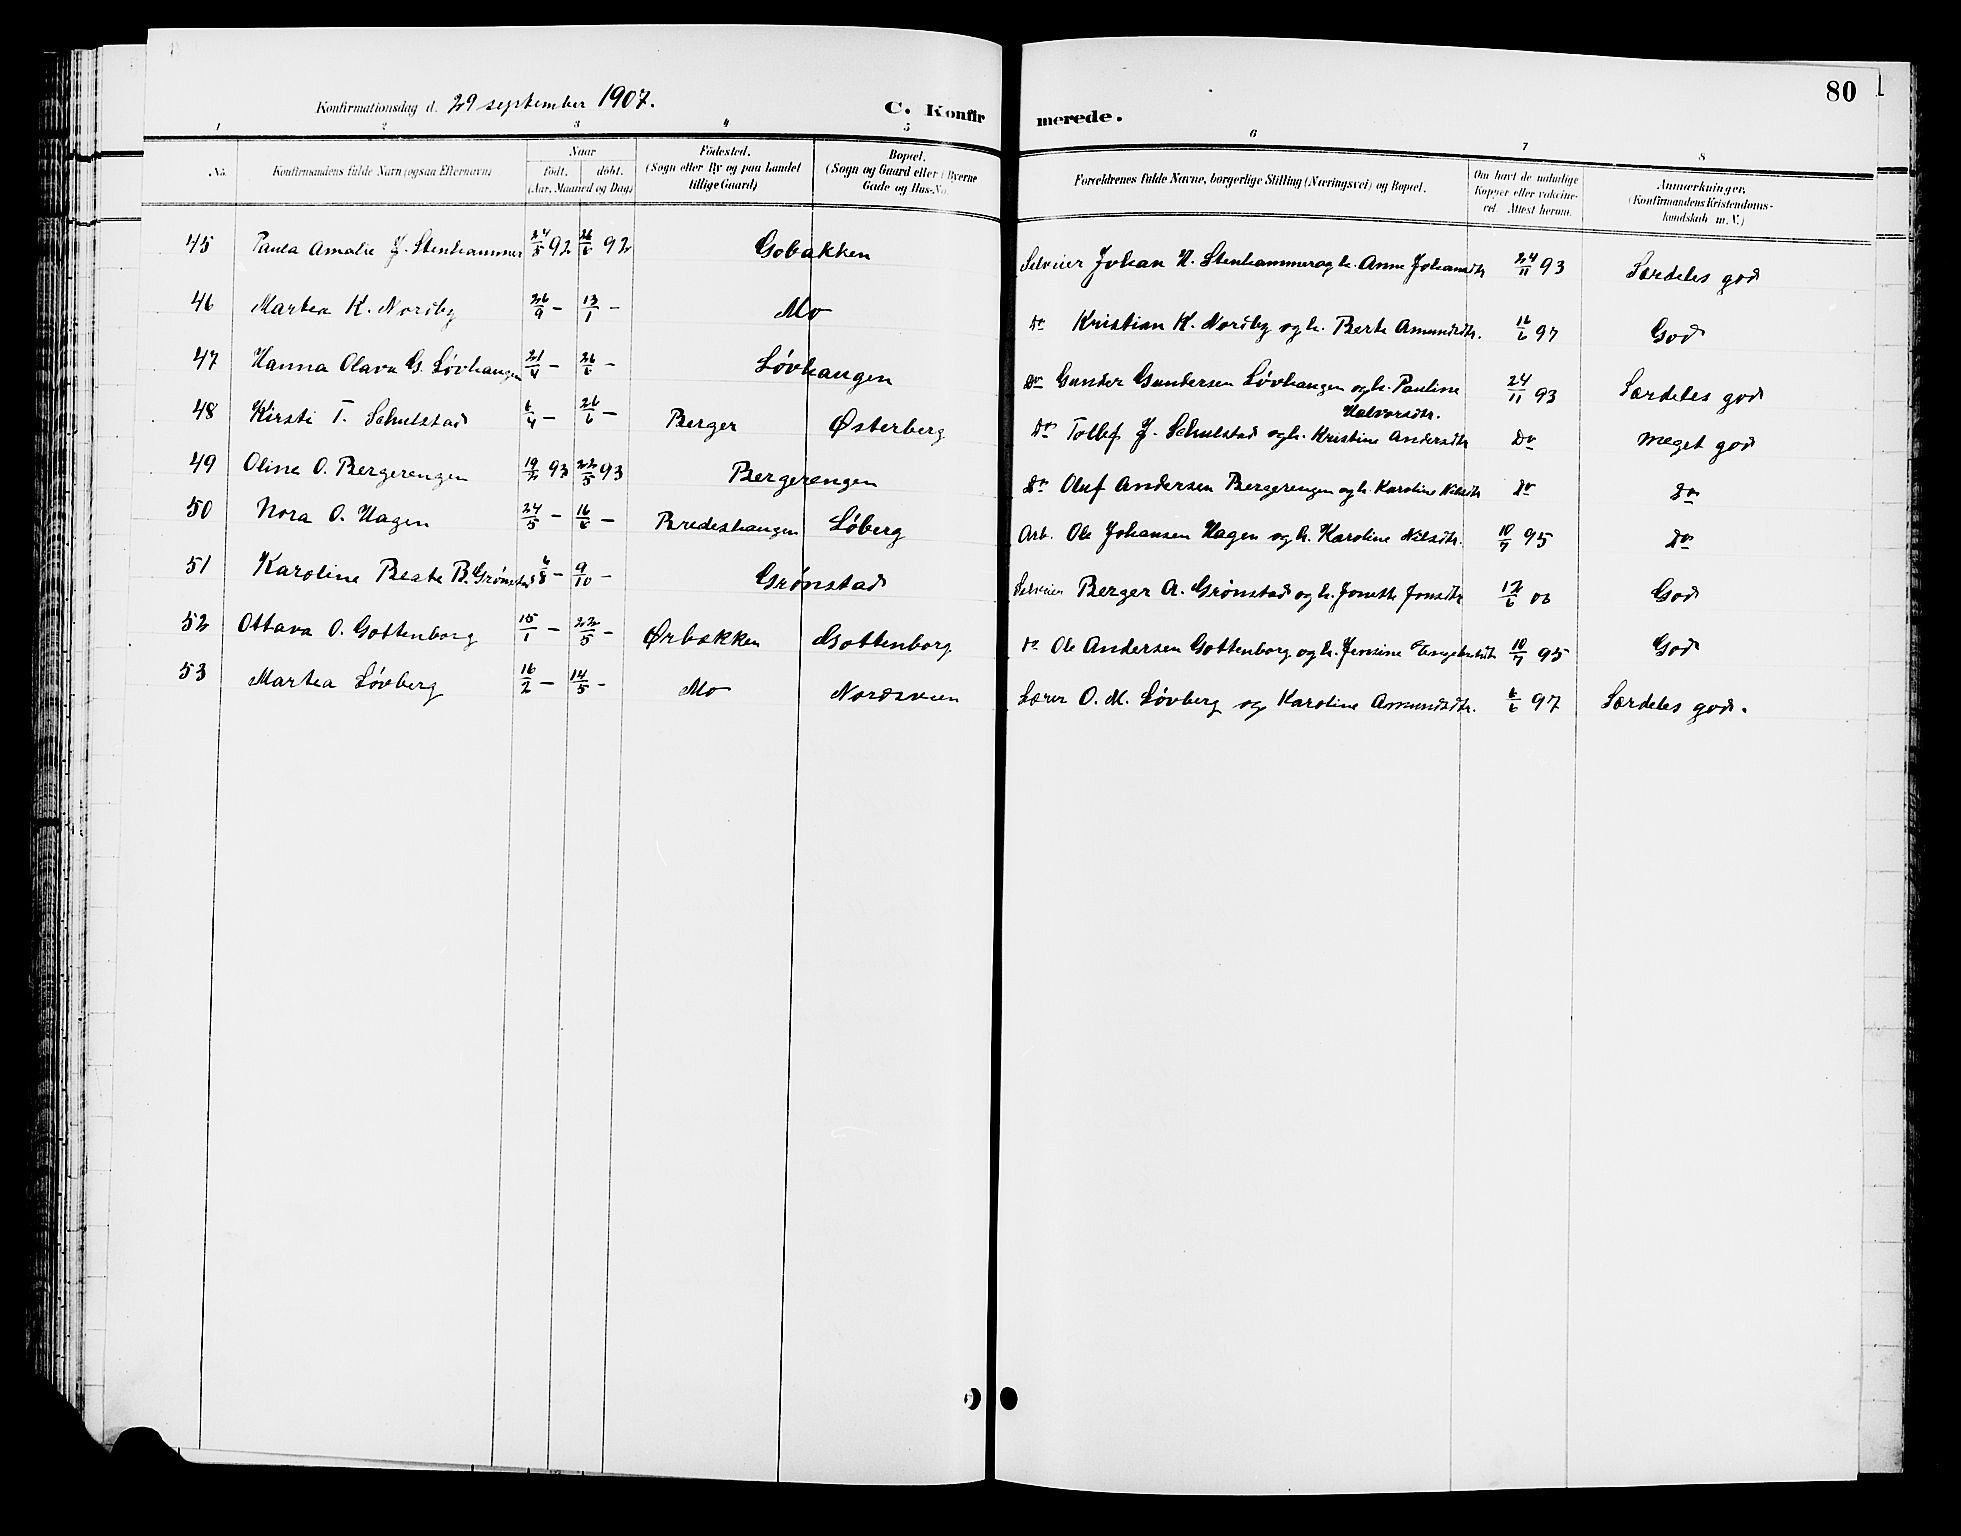 80
Konfirmationsdag d. 29 september 1907.
C. Konfirmerede.
1 2 3 4 5 6 7 8
No. Konfirmandens fulde Navn (ogsaa Efternavn) Naar født. døbt. (Aar, Maaned og Dag) Fødested. (Sogn eller By og paa Landet tillige Gaard) Bopæl. (Sogn og Gaard eller i Byerne Gade og Hus-No. Forældrenes fulde Navne, borgerlige Stilling (Næringsvei) og Bopæl. Om havt de naturlige Kopper eller vakcineret. Attest herom. Anmærkninger. (Konfirmandens Kristendomskundskab m. V.)
45 Paula Amalie J. Stenhammer 24/5 92 26/6 92 Gobakken Selveier Johan N. Stenhammer og h. Anne Johansdtr 24/11 93 Særdeles god
46 Martea K. Nordby 26/9 – 13/1 – Mo Do Kristian K. Nordby og h. Berte Amundsdtr. 16/6 97 God
47 Hanna Olava G. Løvhaugen 21/4 – 26/6 – Løvhaugen Do Gunder Gundersen Løvhaugen og h. Pauline Halvorsdtr. 24/11 93 Særdeles god
48 Kirsti T. Schulstad 6/4 – 26/6 – Berger Østerberg Do Tollef J. Schulstad og h. Kristine Andersdtr Do meget god
49 Oline O. Bergerengen 19/2 93 22/5 93 Bergerengen Do Oluf Andersen Bergerengen og h. Karoline Nilsdtr Do Do
50 Nora O. Hagen 24/5 – 16/6 – Bredeshaugen Løberg Arb. Ole Johansen Hagen og h. Karoline Nilsdtr. 10/7 95 Do
51 Karoline Beate B. Grønstad 6/8 – 9/10 – Grønstad Selveier Berger A. Grønstad og h. Jonette Jonsdtr 12/6 06 God
52 Ottava O. Gottenborg 15/1 – 22/5 – Ørbækken Gottenborg Do Ole Andersen Gottenborg og h. Jensine Engebretsdtr 10/7 95 God
53 Martea Løvberg 16/2 – 14/5 – Mo Nordsveen Lærer O. M. Løvberg og Karoline Amundsdtr. 6/6 97 Særdeles god.